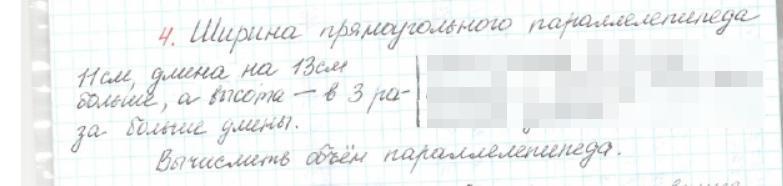 4. Ширина прямоугольного параллелепипеда
11см, длина на 13см
больше, а высота – в 3 ра-
за больше длины.
Вычислить объём параллелепипеда.